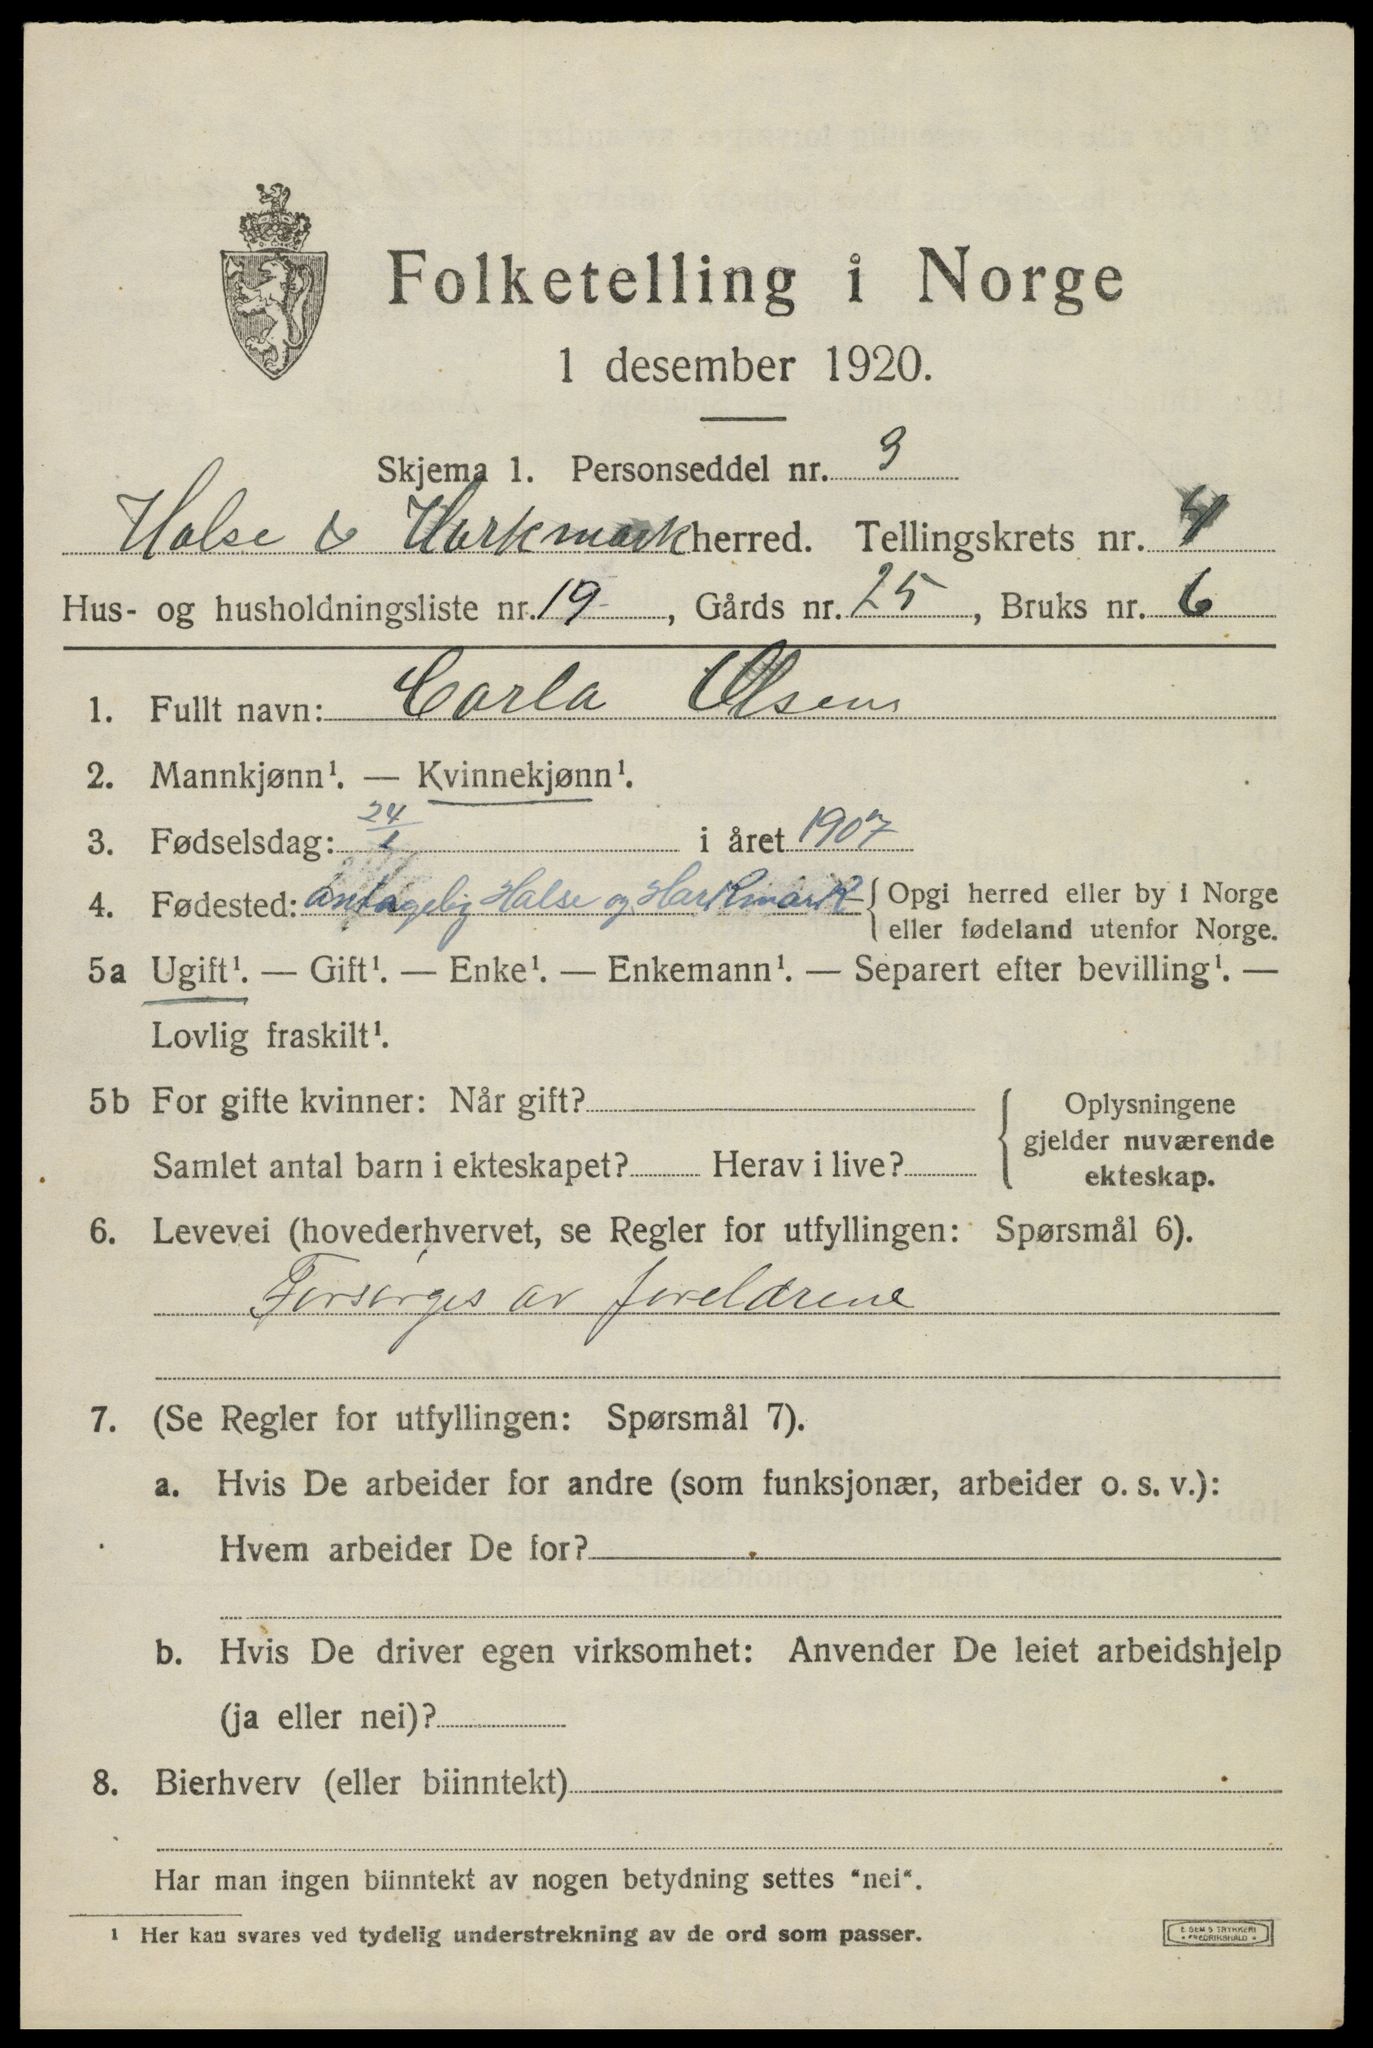 Folketelling i Norge
1 desember 1920.
Skjema 1. Personseddel nr. 3
Halse & Harkmark herred. Tellingskrets nr. 4
Hus- og husholdningsliste nr. 19, Gårds nr. 25, Bruks nr. 6
1. Fullt navn: Carla Olsen
2. Mannkjønn¹. — Kvinnekjønn¹.
3. Fødselsdag: 24/1 i året 1907
4. Fødested: antagelig Halse og Harkmark { Opgi herred eller by i Norge
eller fødeland utenfor Norge.
5a Ugift¹. — Gift¹. — Enke¹. — Enkemann¹. — Separert efter bevilling¹. —
Lovlig fraskilt¹.
5b For gifte kvinner: Når gift?
Samlet antal barn i ekteskapet? Herav i live?
{ Oplysningene
gjelder nuværende
ekteskap.
6. Levevei (hovederhvervet, se Regler for utfyllingen: Spørsmål 6).
Forsørges av foreldrene
7. (Se Regler for utfyllingen: Spørsmål 7).
a. Hvis De arbeider for andre (som funksjonær, arbeider o. s. v.):
Hvem arbeider De for?
b. Hvis De driver egen virksomhet: Anvender De leiet arbeidshjelp
(ja eller nei)?
8. Bierhverv (eller biinntekt)
Har man ingen biinntekt av nogen betydning settes "nei".
¹ Her kan svares ved tydelig understrekning av de ord som passer.
E. SEMS TRYKKERI
• FREDRIKSHALD •